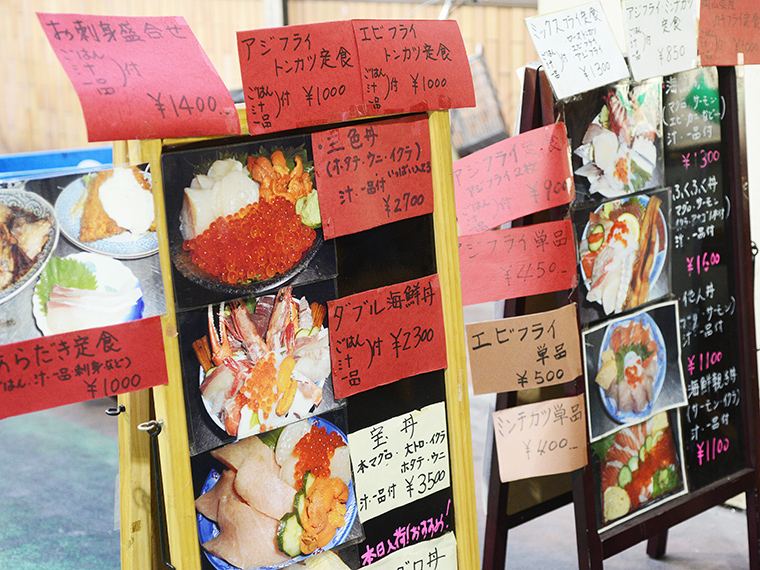 お刺身盛合せ
ごはん
汁
一品
付
¥1400.
アジフライ
トンカツ定食
ごはん
汁
一品
付
¥1000
エビフライ
トンカツ定食
ごはん
汁
一品
付
¥1000
三色丼
(ホタテ・ウニ・イクラ)
汁・一品付
¥2700
ダブル海鮮丼
ごはん
汁
一品
付
¥2300
宝丼
本マグロ・大トロ・イクラ
ホタテ・ウニ
汁・一品付
¥3500
本日入荷!おすすめ!
あらだき定食
(ごはん・汁・一品・刺身など)
¥1000
ミックスフライ定食
¥1300
アジフライ ミンチカツ
定食
¥850
アジフライ定食
アジフライ2枚
¥900
アジフライ単品
¥450
エビフライ
単品
¥500
ミンチカツ単品
¥400
マグロ・サーモン
汁・一品付
¥1300
ふくふく丼
汁・一品付
他人丼
汁・一品付
¥1100
海鮮親子丼
(サーモン・イクラ)
汁・一品付
¥1100